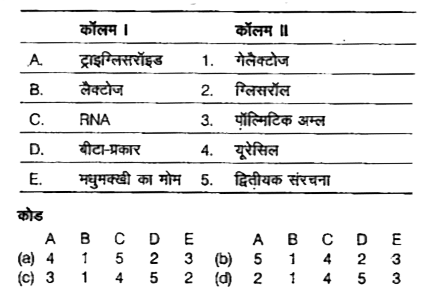 कॉलम I कॉलम II
A. ट्राइग्लिसरॉइड 1. गेलैक्टोज
B. लैक्टोज 2. ग्लिसरॉल
C. RNA 3. पॉल्मिटिक अम्ल
D. बीटा-प्रकार 4. यूरेसिल
E. मधुमक्खी का मोम 5. द्वितीयक संरचना
कोड
A B C D E A B C D E
(a) 4 1 5 2 3 (b) 5 1 4 2 3
(c) 3 1 4 5 2 (d) 2 1 4 5 3